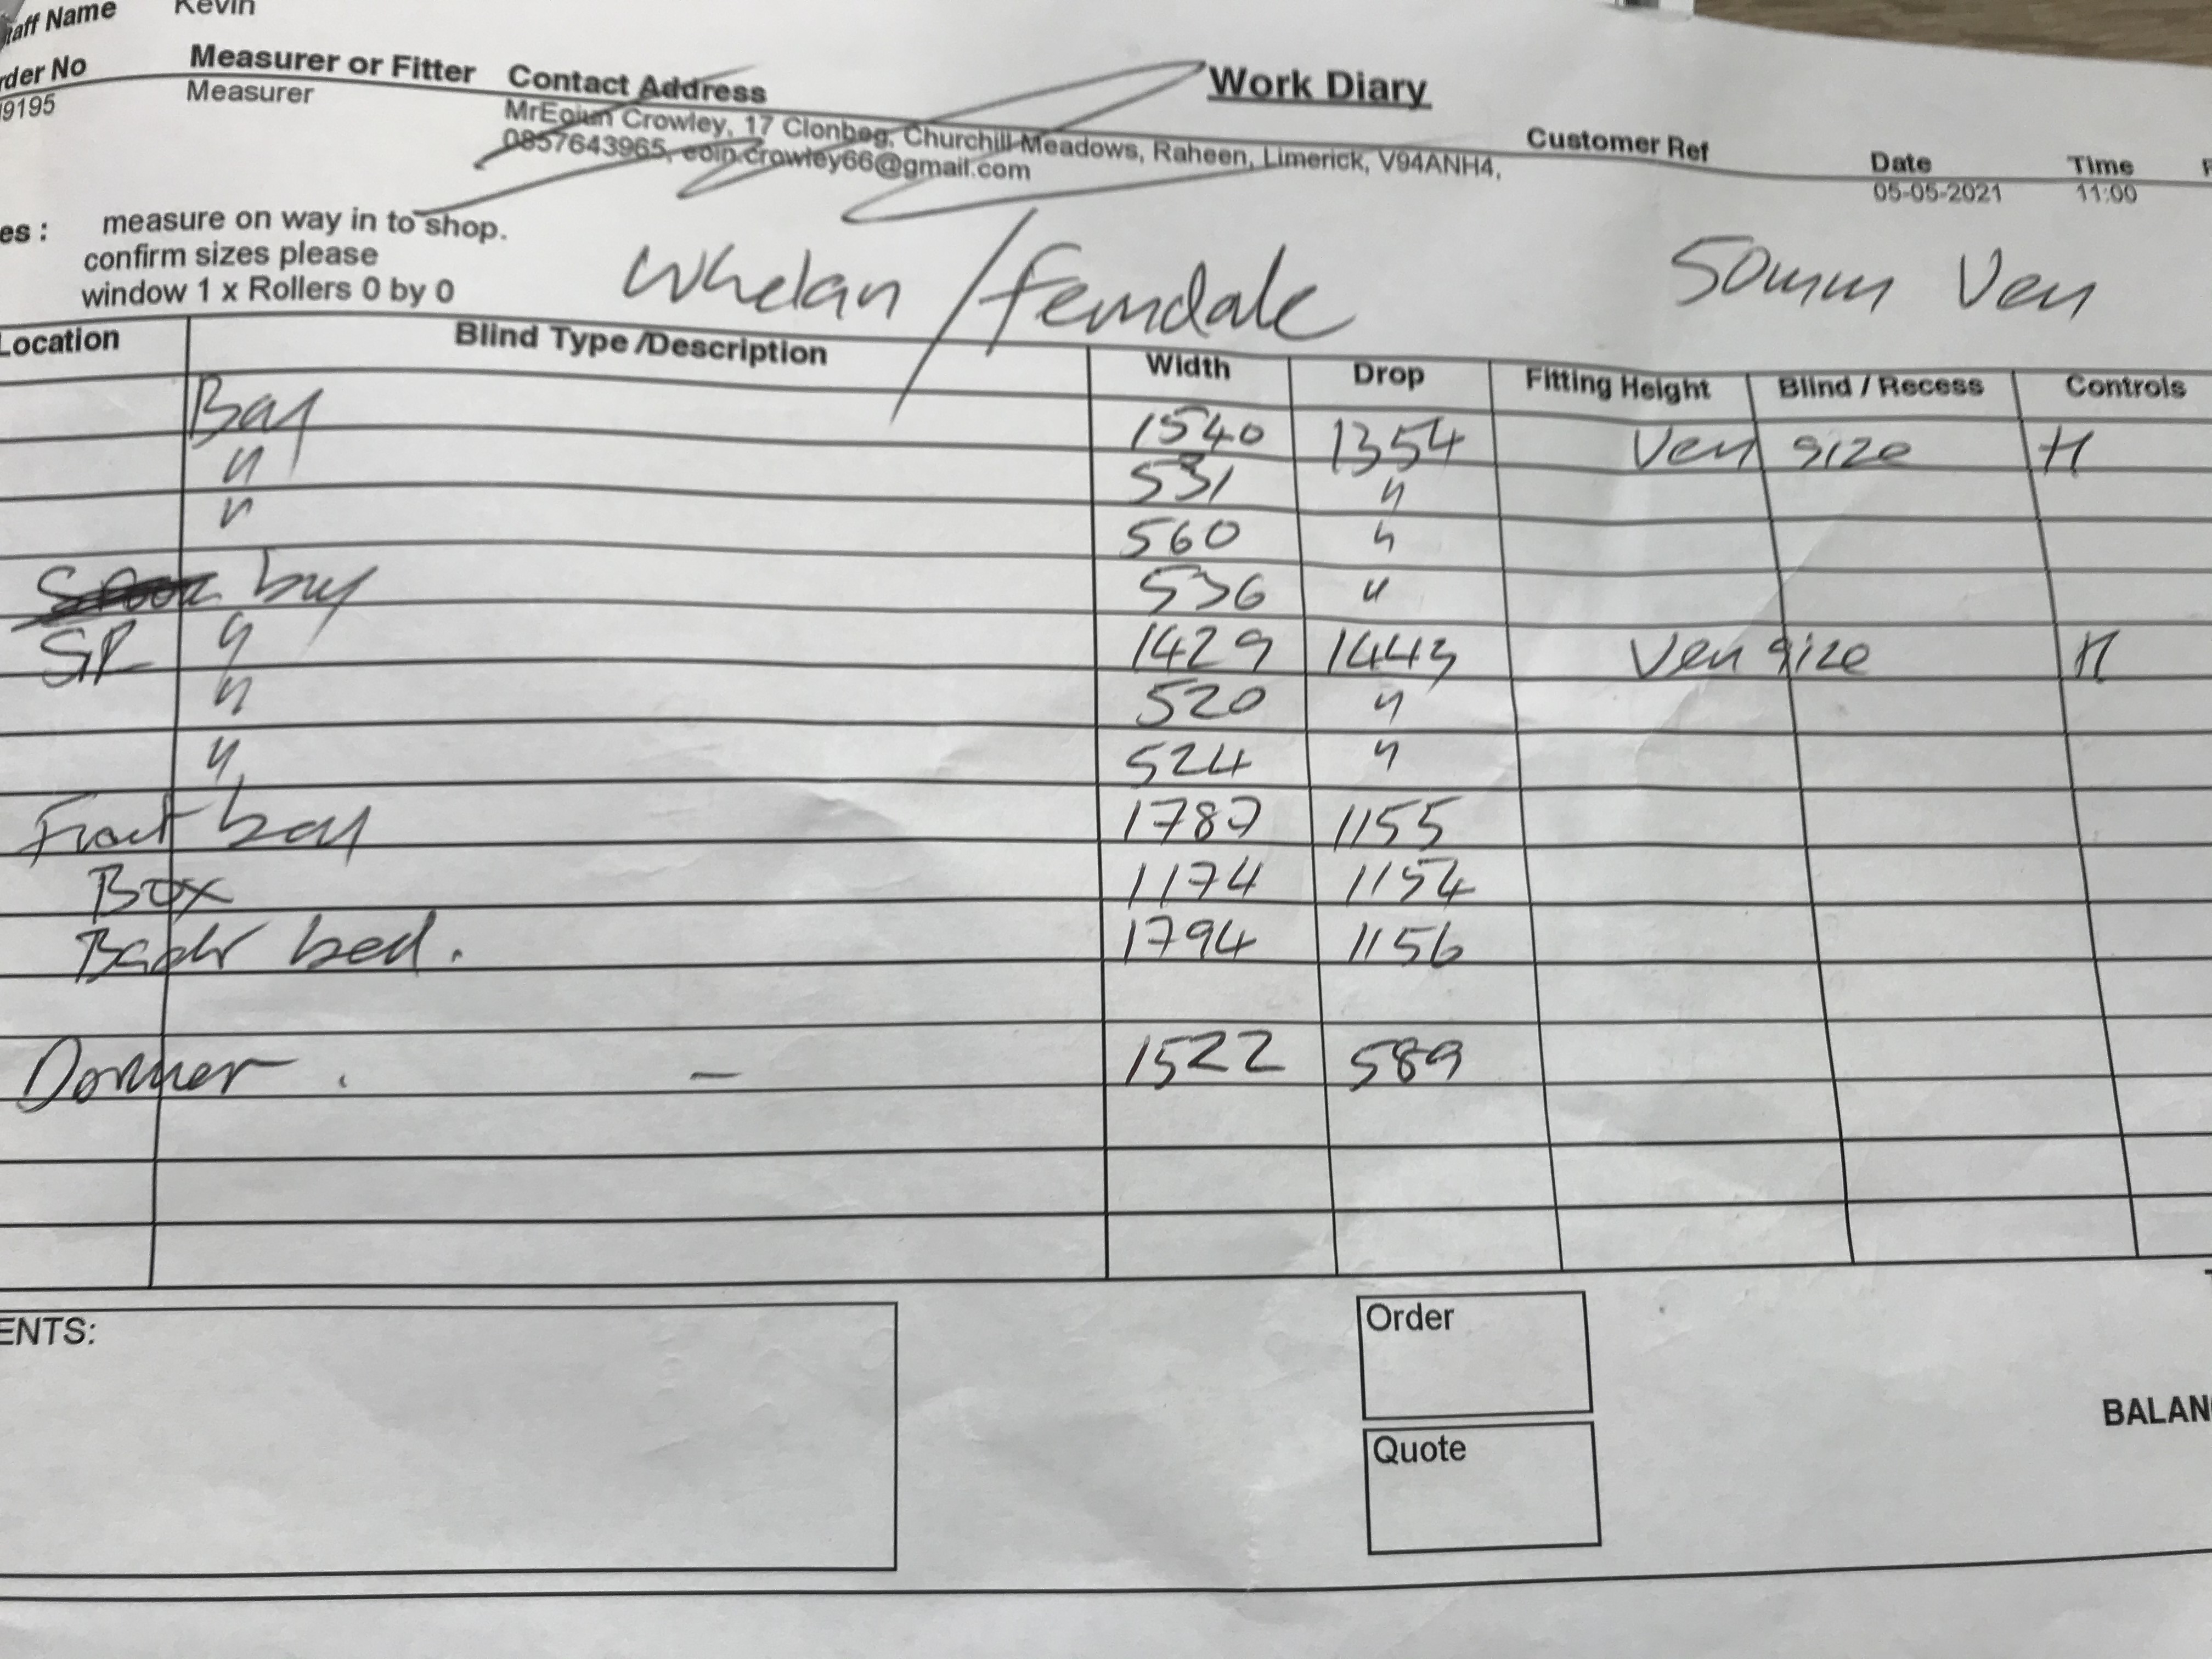 aff Name Kevin
rder No Measurer or Fitter Contact Address Work Diary Customer Ref Date Time
9195 Measurer MrEoiun Crowley, 17 Clonbeg, Churchill Meadows, Raheen, Limerick, V94ANH4, 05-05-2021 11:00
0857643965, eoin.crowley66@gmail.com
es : measure on way in to shop.
confirm sizes please
window 1 x Rollers 0 by 0
Whelan / Ferndale 50mm Ven
Location Blind Type /Description Width Drop Fitting Height Blind / Recess Controls
Bay 1540 1354 Ven size H
" 531 "
" 560 "
bay 536 "
SR " 1429 1443 Ven size H
" 520 "
" 524 "
Front bay 1787 1155
Box 1174 1154
Back bed. 1794 1156
Dormer . - 1522 589
ENTS:
Order
Quote
BALAN